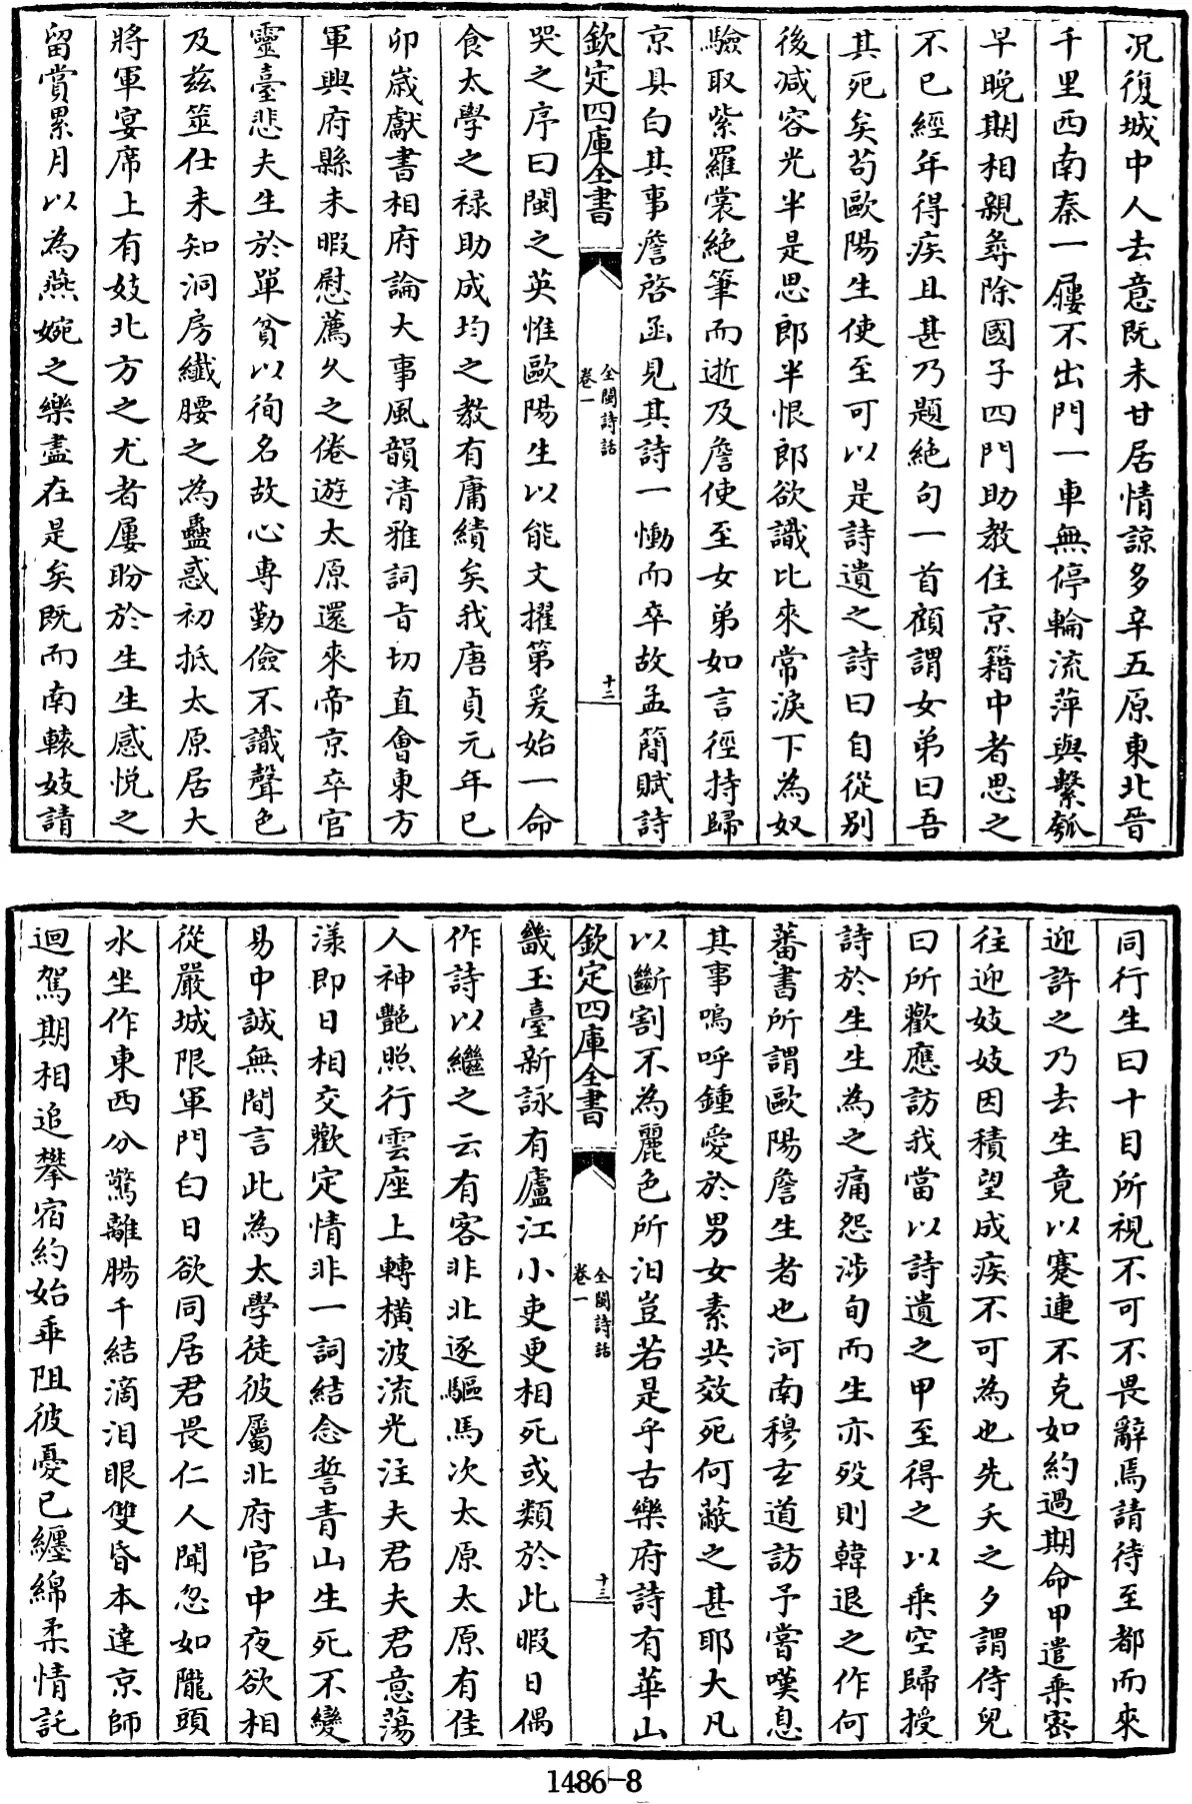 况復城中人去意既未甘居情諒多辛五原東北晉
千里西南秦一屨不出門一車無停輪流萍與繫瓠
早晚期相親尋除國子四門助教住京籍中者思之
不已經年得疾且甚乃題絶句一首顧謂女弟曰吾
其死矣苟歐陽生使至可以是詩遺之詩曰自從别
後减容光半是思郎半恨郎欲識比來常淚下為奴
驗取紫羅裳絶筆而逝及詹使至女弟如言徑持歸
京具白其事詹啓函見其詩一慟而卒故孟簡賦詩
欽定四庫全書
全閩詩話
卷一
十二
哭之序曰閩之英惟歐陽生以能文擢第爰始一命
食太學之禄助成均之教有庸績矣我唐貞元年已
卯歲獻書相府論大事風韻清雅詞旨切直會東方
軍興府縣未暇慰薦久之倦遊太原還來帝京卒官
靈臺悲夫生於單貧以徇名故心專勤儉不識聲色
及兹筮仕未知洞房纖腰之為蠱惑初抵太原居大
將軍宴席上有妓北方之尤者屢盼於生生感悦之
留賞累月以為燕婉之樂盡在是矣既而南轅妓請
同行生曰十目所視不可不畏辭焉請待至都而來
迎許之乃去生竟以蹇連不克如約過期命甲遣乘密
往迎妓妓因積望成疾不可為也先夭之夕謂侍兒
曰所歡應訪我當以詩遺之甲至得之以乘空歸授
詩於生生為之痛怨涉旬而生亦殁則韓退之作何
蕃書所謂歐陽詹生者也河南穆玄道訪予嘗嘆息
其事嗚呼鍾愛於男女素共效死何蔽之甚耶大凡
以斷割不為麗色所汨豈若是乎古樂府詩有華山
欽定四庫全書
全閩詩話
卷一
十三
畿玉臺新詠有廬江小吏更相死或類於此暇日偶
作詩以繼之云有客非北逐驅馬次太原太原有佳
人神艷照行雲座上轉横波流光注夫君夫君意蕩
漾即日相交歡定情非一詞結念誓青山生死不變
易中誠無間言此為太學徒彼屬北府官中夜欲相
從嚴城限軍門白日欲同居君畏仁人聞忽如隴頭
水坐作東西分驚離腸千結滴泪眼雙昏本達京師
迴駕期相追攀宿約始乖阻彼憂已纏綿柔情託
1486-8